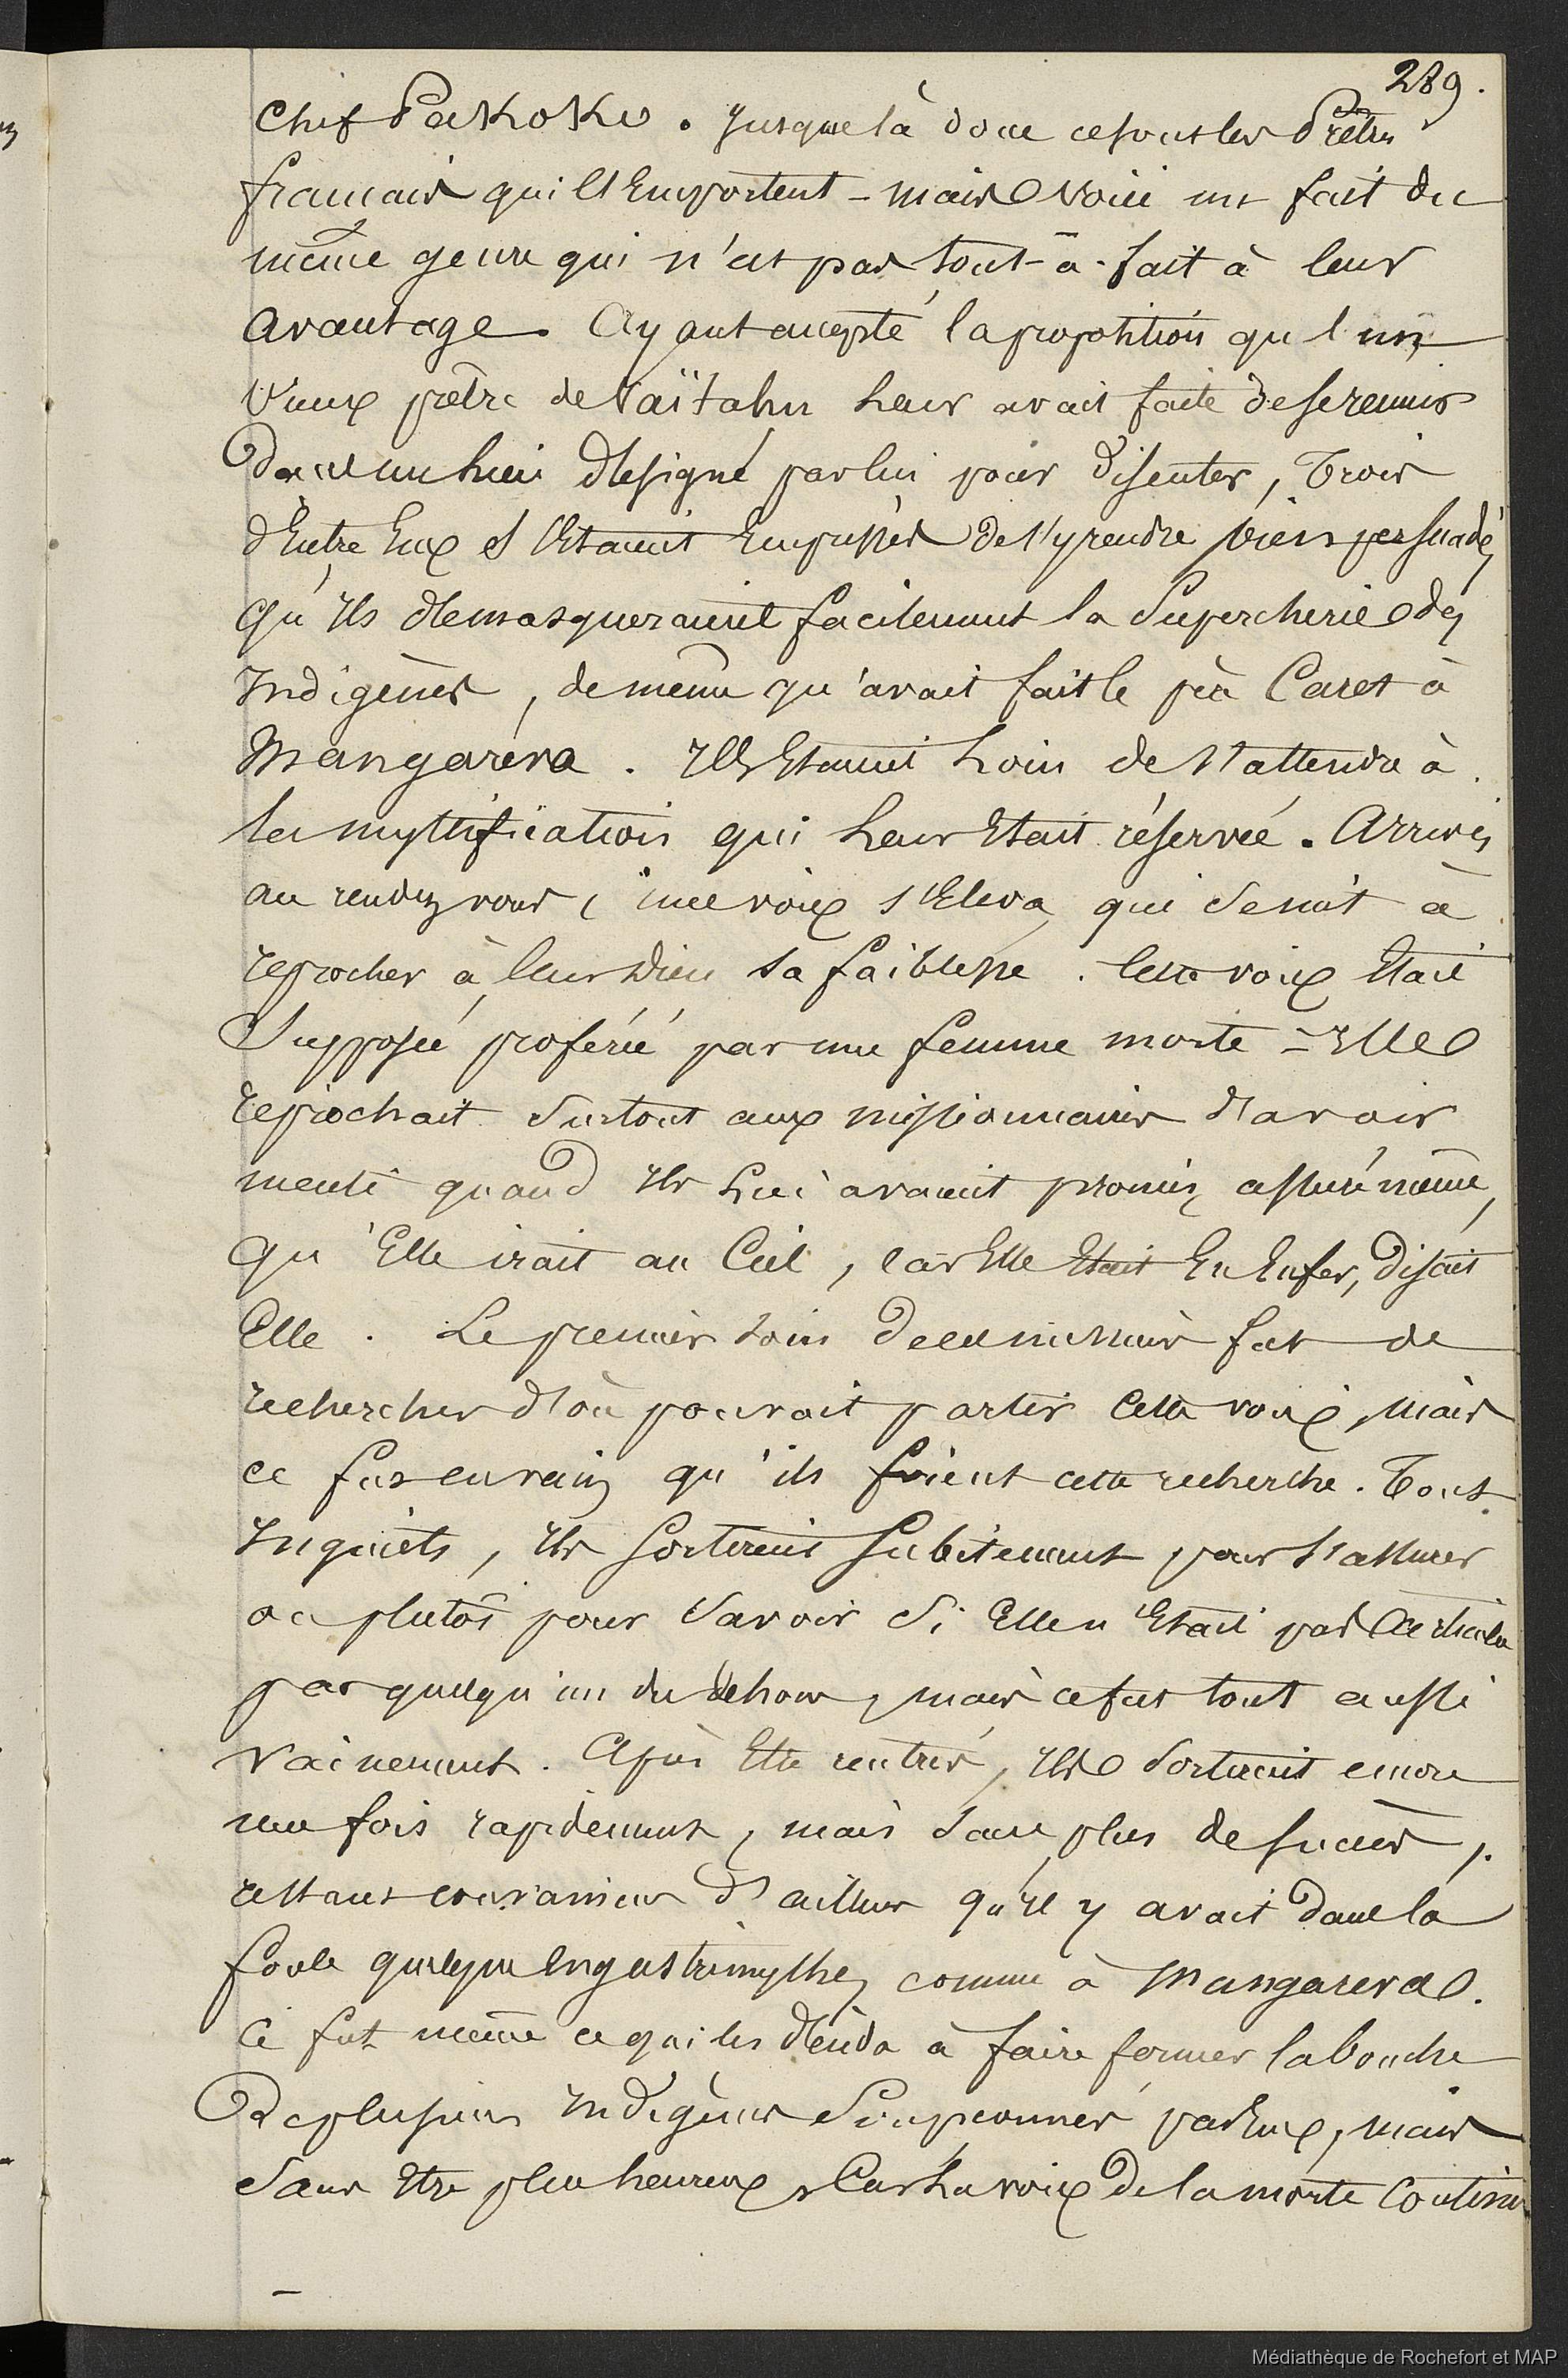 289.
Chef Pakoko. Jusque là donc ce sont les Prêtres
francais qui l'Emportent - mais voici un fait du
même genre qui n'est pas tout-à-fait à leur
avantage. Ayant accepté la proposition qu'un
vieux prêtre de Vaïtahu leur avait faite de se reunir
dans un lieu désigné par lui pour discuter, Trois
d'Entre Eux s'Etaient Empressés de s'y rendre bien persuadés
qu'ils démasqueraient facilement la Supercherie des
Indigènes, de même qu'avait fait le père Caret à
Mangaréva. Ils Etaient loin de s'attendre à
la mystification qui leur Etait réservée. Arrivés
au rendez vous, une voix s'Eleva, qui se mit à
reprocher à leur Dieu sa faiblesse. Cette voix Etait
Supposée proférée par une femme morte = Elle
reprochait surtout aux missionnaires d'avoir
menti quand ils lui avaient promis, assuré même,
qu'Elle irait au Ciel, car Elle Etait En Enfer, disait
Elle. Le premier soin de ces messieurs fut de
rechercher d'où pouvait partir Cette voix, Mais
ce fut en vain qu'ils firent cette recherche. Tous
Inquiets, ils sortirent subitement pour s'assurer
ou plutôt pour savoir si Elle n'Etait pas articulée
par quelqu'un du dehors, mais ce fut tout aussi
vainement. Après Etre rentrés, ils sortirent encore
une fois rapidement, mais sans plus de succès,
restant convaincus d'ailleurs qu'il y avait dans la
foule quelque Engastrimythe, comme à Mangareva.
Ce fut même ce qui les décida à faire fermer la bouche
De plusieurs Indigènes soupconnés par Eux, mais
sans Etre plus heureux, Car la voix De la morte Continu